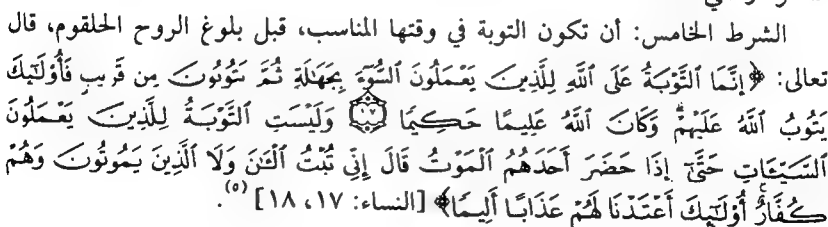 الشرط الخامس: أن تكون التوبة في وقتها المناسب، قبل بلوغ الروح الحلقوم، قال
تعالى: ﴿إِنَّمَا ٱلتَّوْبَةُ عَلَى ٱللَّهِ لِلَّذِينَ يَعْمَلُونَ ٱلسُّوٓءَ بِجَهَٰلَةٍ ثُمَّ يَتُوبُونَ مِن قَرِيبٍ فَأُو۟لَٰٓئِكَ
يَتُوبُ ٱللَّهُ عَلَيْهِمْ ۗ وَكَانَ ٱللَّهُ عَلِيمًا حَكِيمًا ۝١٧ وَلَيْسَتِ ٱلتَّوْبَةُ لِلَّذِينَ يَعْمَلُونَ
ٱلسَّيِّـَٔاتِ حَتَّىٰٓ إِذَا حَضَرَ أَحَدَهُمُ ٱلْمَوْتُ قَالَ إِنِّى تُبْتُ ٱلْـَٰٔنَ وَلَا ٱلَّذِينَ يَمُوتُونَ وَهُمْ
كُفَّارٌ ۚ أُو۟لَٰٓئِكَ أَعْتَدْنَا لَهُمْ عَذَابًا أَلِيمًا﴾ [النساء: ١٧، ١٨] (٥).